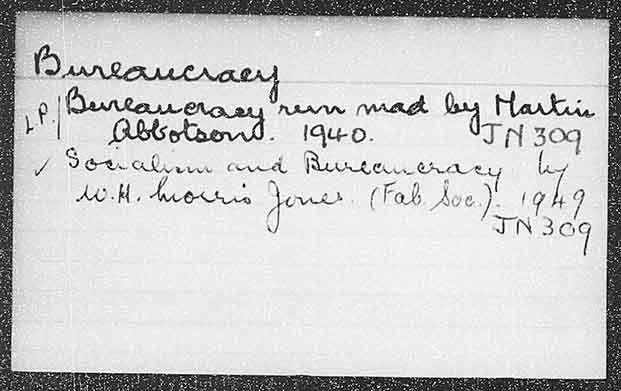 Bureaucracy
L.P./ Bureaucracy run mad by Martin
Abbotson. 1940. JN309
✓ Socialism and Bureaucracy by
W.H. Morris Jones. (Fab. Soc.). 1949
JN309